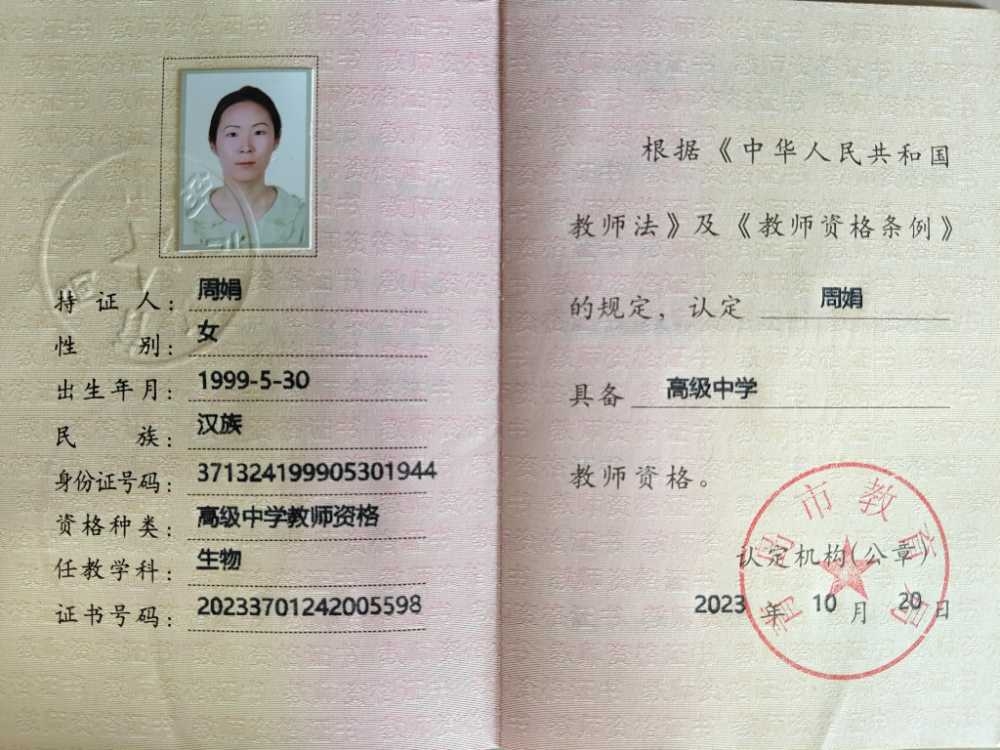 持证人：周娟
性别：女
出生年月：1999-5-30
民族：汉族
身份证号码：371324199905301944
资格种类：高级中学教师资格
任教学科：生物
证书号码：20233701242005598
根据《中华人民共和国
教师法》及《教师资格条例》
的规定，认定 周娟
具备 高级中学
教师资格。
市教育局
认定机构(公章)
2023 年 10 月 20 日